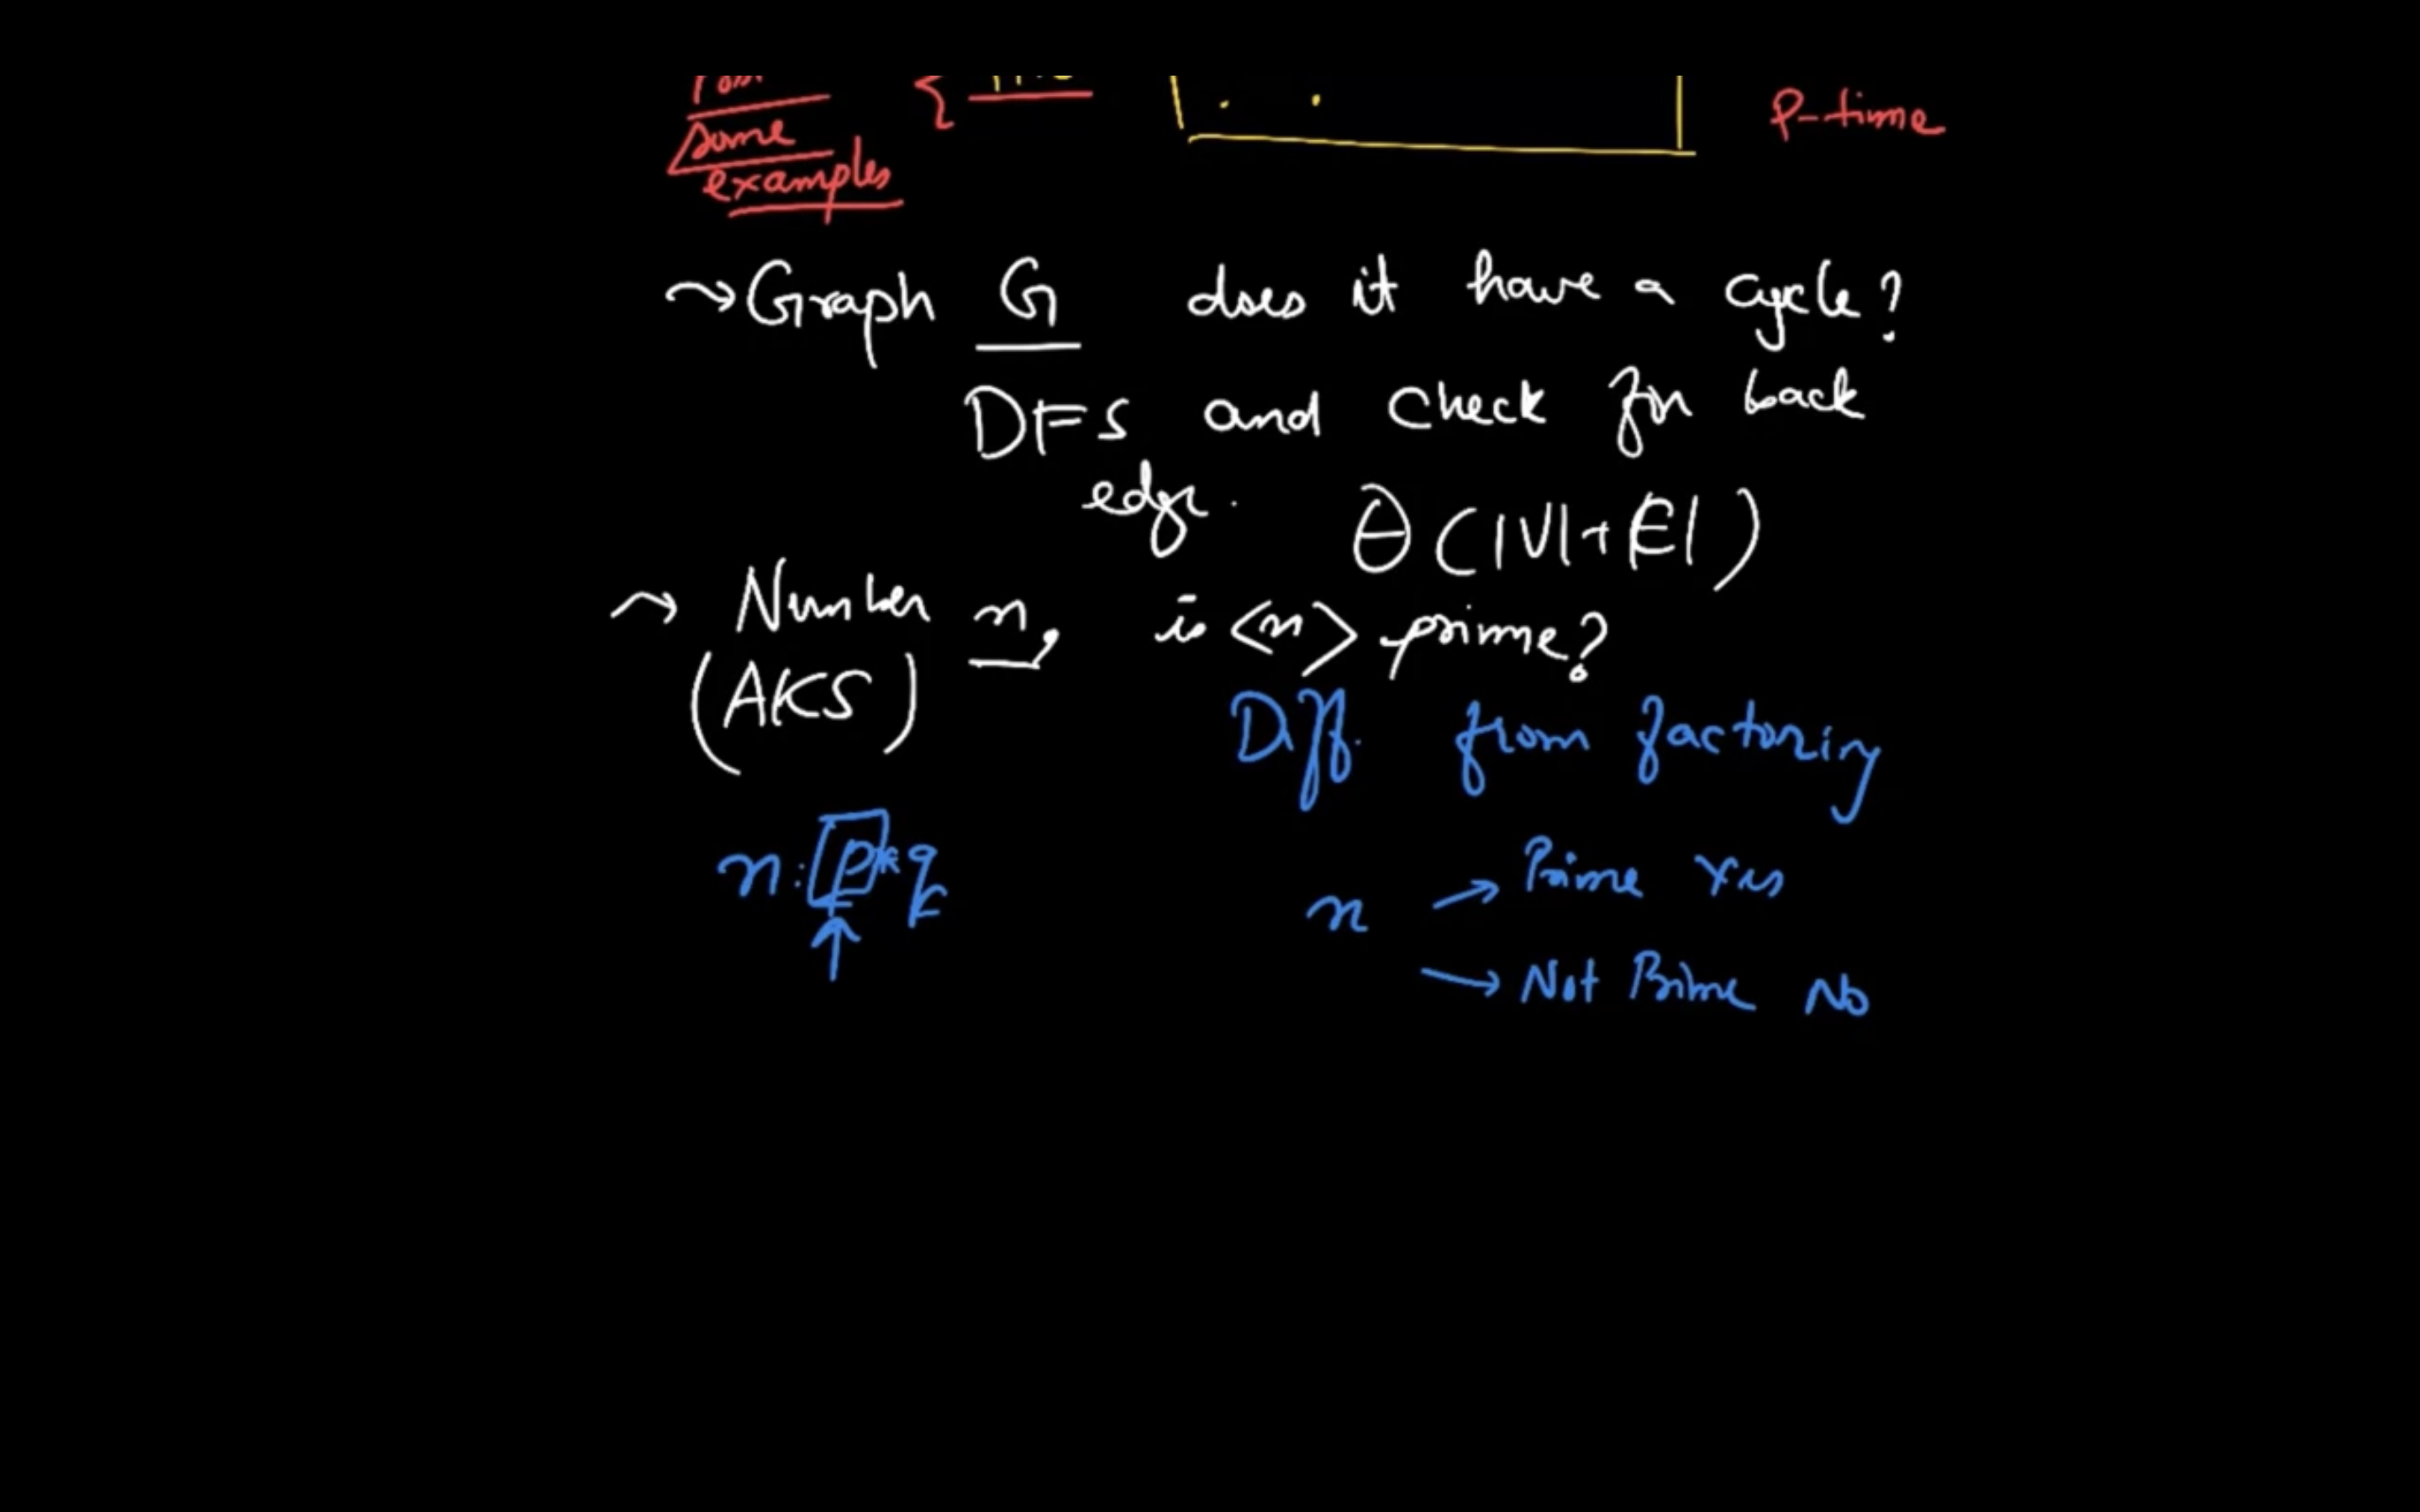 P-time
Some
examples
Graph G does it have a cycle?
DFS and check for back
edge. Θ(|V|+|E|)
Number n, is <n> prime?
(AKS)
Diff. from factoring
n: p * q
n → Prime Yes
→ Not Prime No